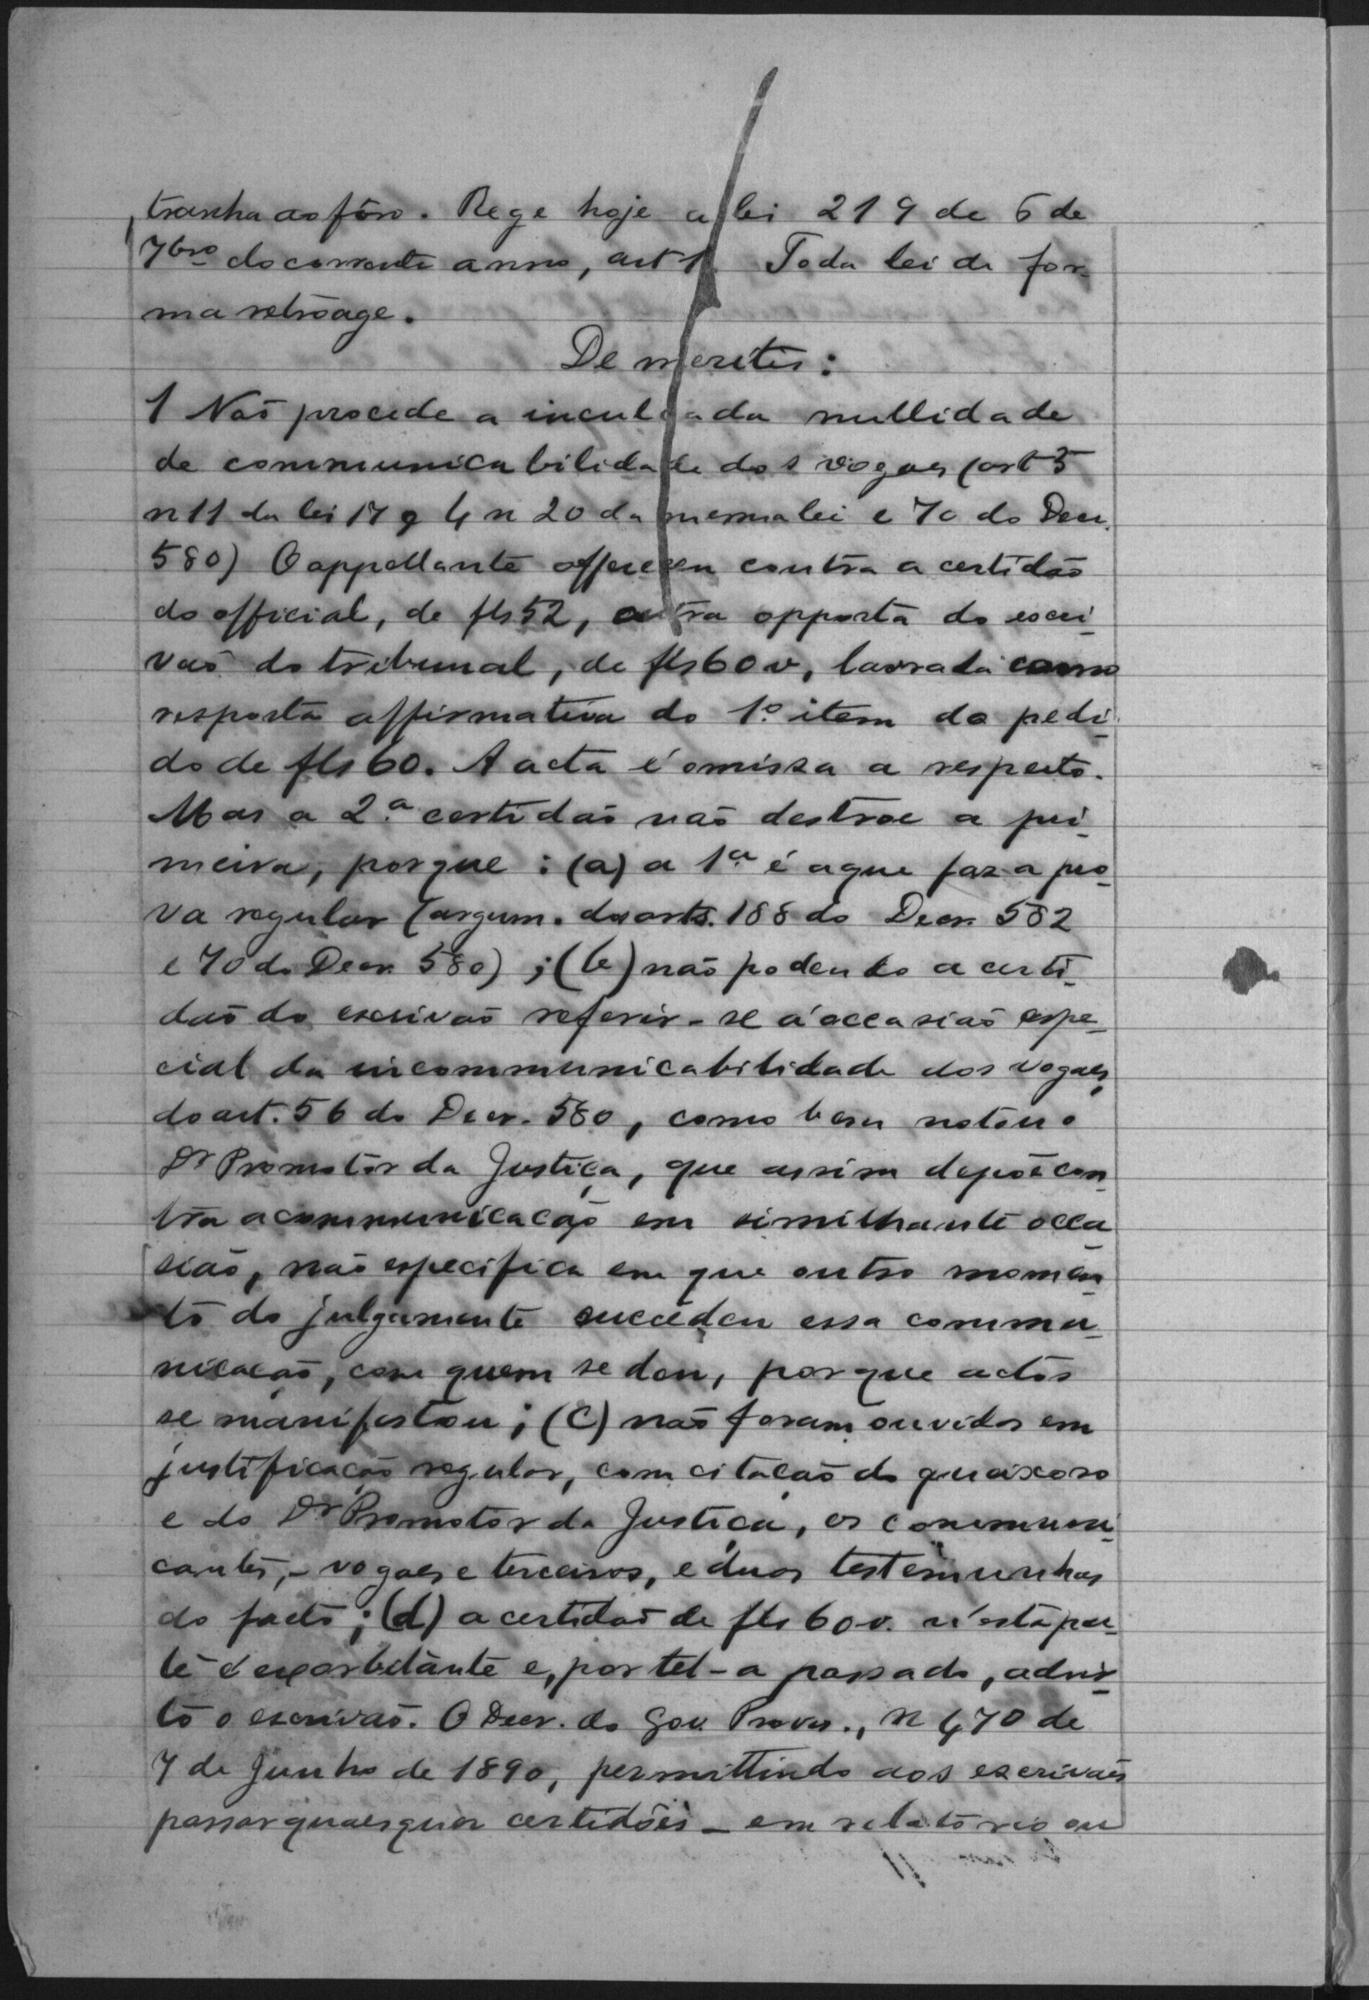 tranha ao fôro. Rege hoje a lei 219 de 6 de
7bro do corrente anno, art 1. Toda lei de for-
ma retroage.
De meritis:
1 Não procede a inculcada nullidade
de communicabilidade dos vogaes (art 5
n 11 da lei 17 e 4 n 20 da mesma lei e 70 do Decr.
580) O appellante offerecen contra a certidão
do official, de fls 52, outra opposta do escri-
vão do tribunal, de fls 60 v, lavrada como
resposta affirmativa do 1º item do pedi-
do de fls 60. A acta é omissa a respeito.
Mas a 2.ª certidão não destroe a pri-
meira, porque: (a) a 1ª é a que faz a pro-
va regular (argum. dos arts. 188 do Decr. 582
e 70 do Decr. 580); (b) não podendo a certi-
dão do escrivão referir-se á occasião espe-
cial da incommunicabilidade dos vogaes,
do art. 56 do Decr. 580, como bem notou o
Dr Promotor da Justiça, que assim depõe con-
tra a communicação em similhante occa-
sião, não especifica em que outro momen-
to do julgamento succedeu essa commu-
nicação, com quem se deu, por que actos
se manifestou; (c) não foram ouvidos em
justificação regular, com citação do queixoso
e do Dr Promotor da Justiça, os communi-
cantes, - vogaes e terceiros, e duas testemunhas
do facto; (d) a certidão de fls 60 v. n'esta par-
te é exorbitante e, por tel-a passado, advir-
to o escrivão. O Decr. do Gov. Provis., n 470 de
7 de Junho de 1890, permittindo aos escrivães
passar quaesquer certidões - em relatorio ou